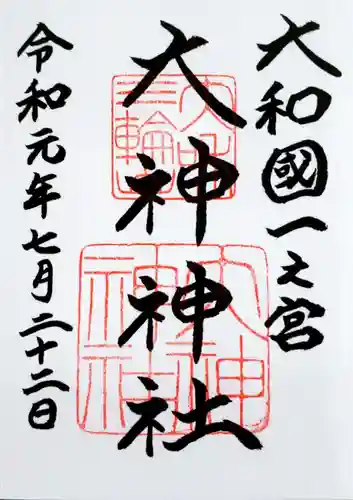 大和國一之宮
大神神社
令和元年七月二十二日
大神神社